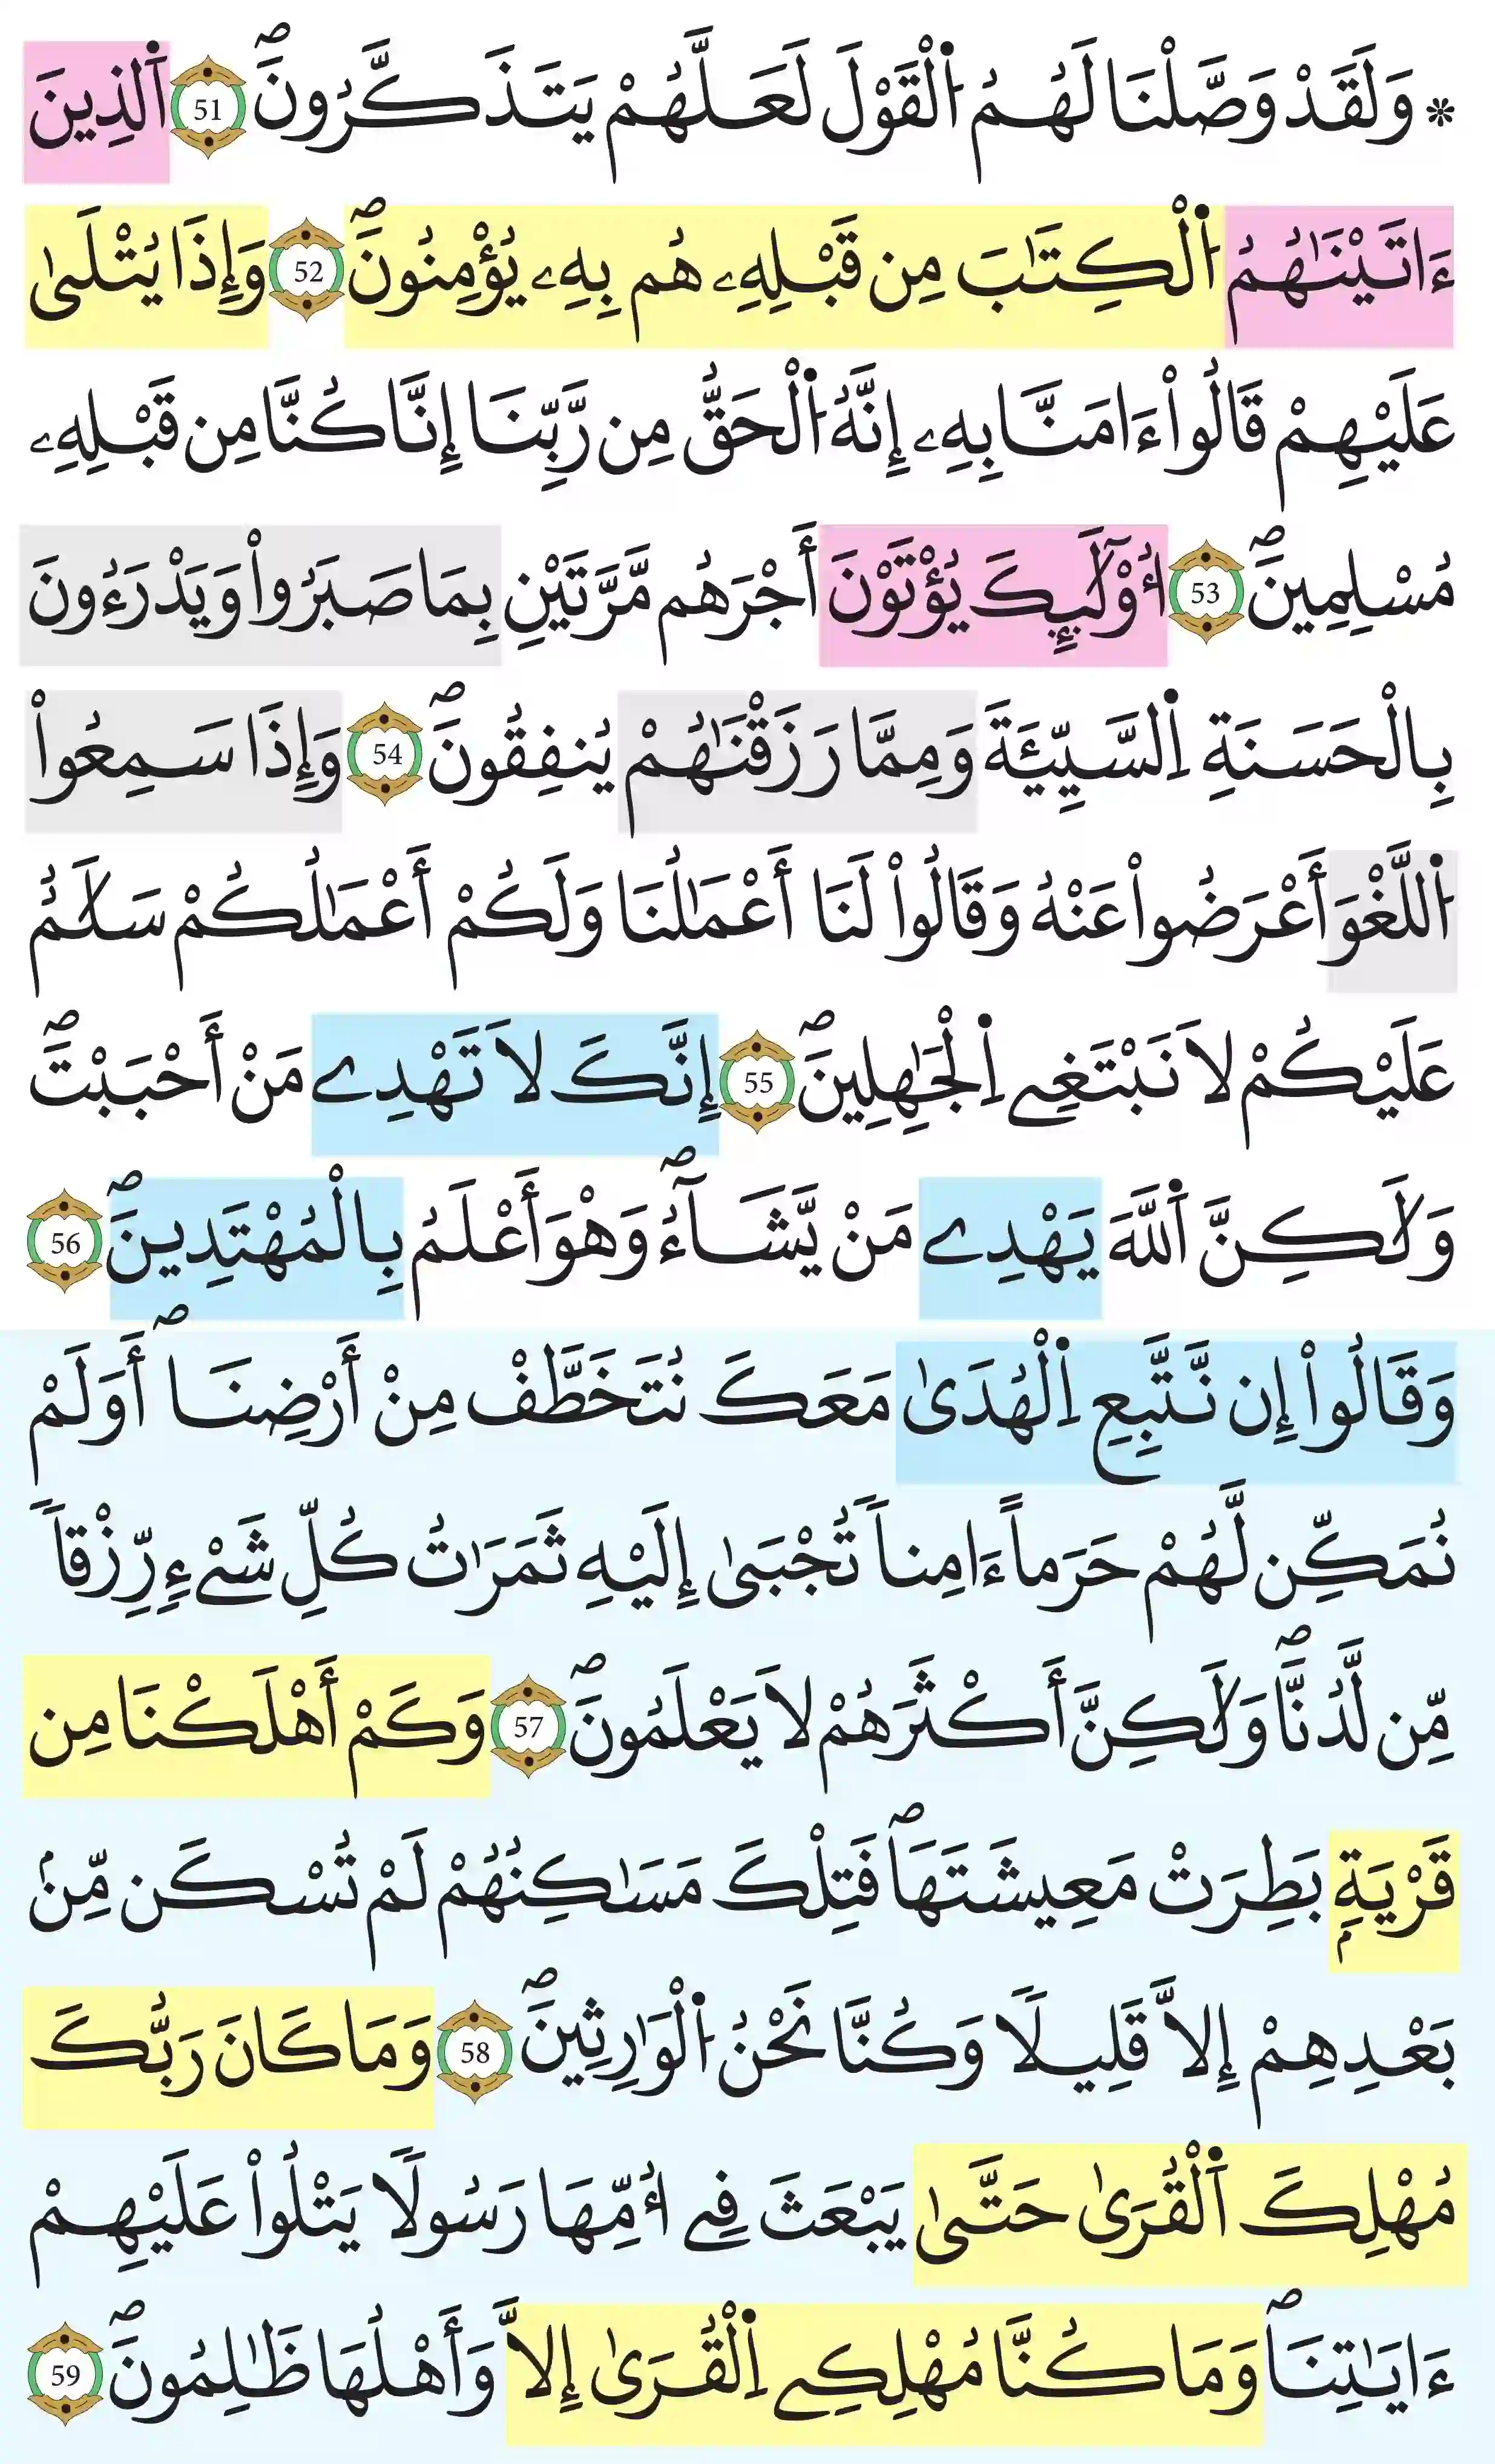 * وَلَقَدْ وَصَّلْنَا لَهُمُ اُ۬لْقَوْلَ لَعَلَّهُمْ يَتَذَكَّرُونَۖ 51 اَ۬لذِينَ
ءَاتَيْنَٰهُمُ اُ۬لْكِتَٰبَ مِن قَبْلِهِۦ هُم بِهِۦ يُؤْمِنُونَۖ 52 وَإِذَا يُتْلَىٰ
عَلَيْهِمْ قَالُواْ ءَامَنَّا بِهِۦ إِنَّهُ اُ۬لْحَقُّ مِن رَّبِّنَا إِنَّا كُنَّا مِن قَبْلِهِۦ
مُسْلِمِينَۖ 53 أُوْلَٰٓئِكَ يُؤْتَوْنَ أَجْرَهُم مَّرَّتَيْنِ بِمَا صَبَرُواْ وَيَدْرَءُونَ
بِالْحَسَنَةِ اِ۬لسَّيِّئَةَ وَمِمَّا رَزَقْنَٰهُمْ يُنفِقُونَۖ 54 وَإِذَا سَمِعُواْ
اُ۬للَّغْوَ أَعْرَضُواْ عَنْهُ وَقَالُواْ لَنَا أَعْمَٰلُنَا وَلَكُمْ أَعْمَٰلُكُمْ سَلَٰمٌ
عَلَيْكُمْ لَا نَبْتَغِے اِ۬لْجَٰهِلِينَۖ 55 إِنَّكَ لَا تَهْدِے مَنْ أَحْبَبْتَۖ
وَلَٰكِنَّ اَ۬للَّهَ يَهْدِے مَنْ يَّشَآءُۖ وَهْوَ أَعْلَمُ بِالْمُهْتَدِينَۖ 56
وَقَالُواْ إِن نَّتَّبِعِ اِ۬لْهُدَىٰ مَعَكَ نُتَخَطَّفْ مِنْ أَرْضِنَاۖ أَوَلَمْ
نُمَكِّن لَّهُمْ حَرَماً ءَامِناً تُجْبَىٰ إِلَيْهِ ثَمَرَٰتُ كُلِّ شَےْءٖ رِّزْقاً
مِّن لَّدُنَّاۖ وَلَٰكِنَّ أَكْثَرَهُمْ لَا يَعْلَمُونَۖ 57 وَكَمْ أَهْلَكْنَا مِن
قَرْيَةِۢ بَطِرَتْ مَعِيشَتَهَاۖ فَتِلْكَ مَسَٰكِنُهُمْ لَمْ تُسْكَن مِّنۢ
بَعْدِهِمْ إِلَّا قَلِيلًا وَكُنَّا نَحْنُ اُ۬لْوَٰرِثِينَۖ 58 وَمَا كَانَ رَبُّكَ
مُهْلِكَ اَ۬لْقُرَىٰ حَتَّىٰ يَبْعَثَ فِے أُمِّهَا رَسُولًا يَتْلُواْ عَلَيْهِمْ
ءَايَٰتِنَاۖ وَمَا كُنَّا مُهْلِكِے اِ۬لْقُرَىٰ إِلَّا وَأَهْلُهَا ظَٰلِمُونَۖ 59